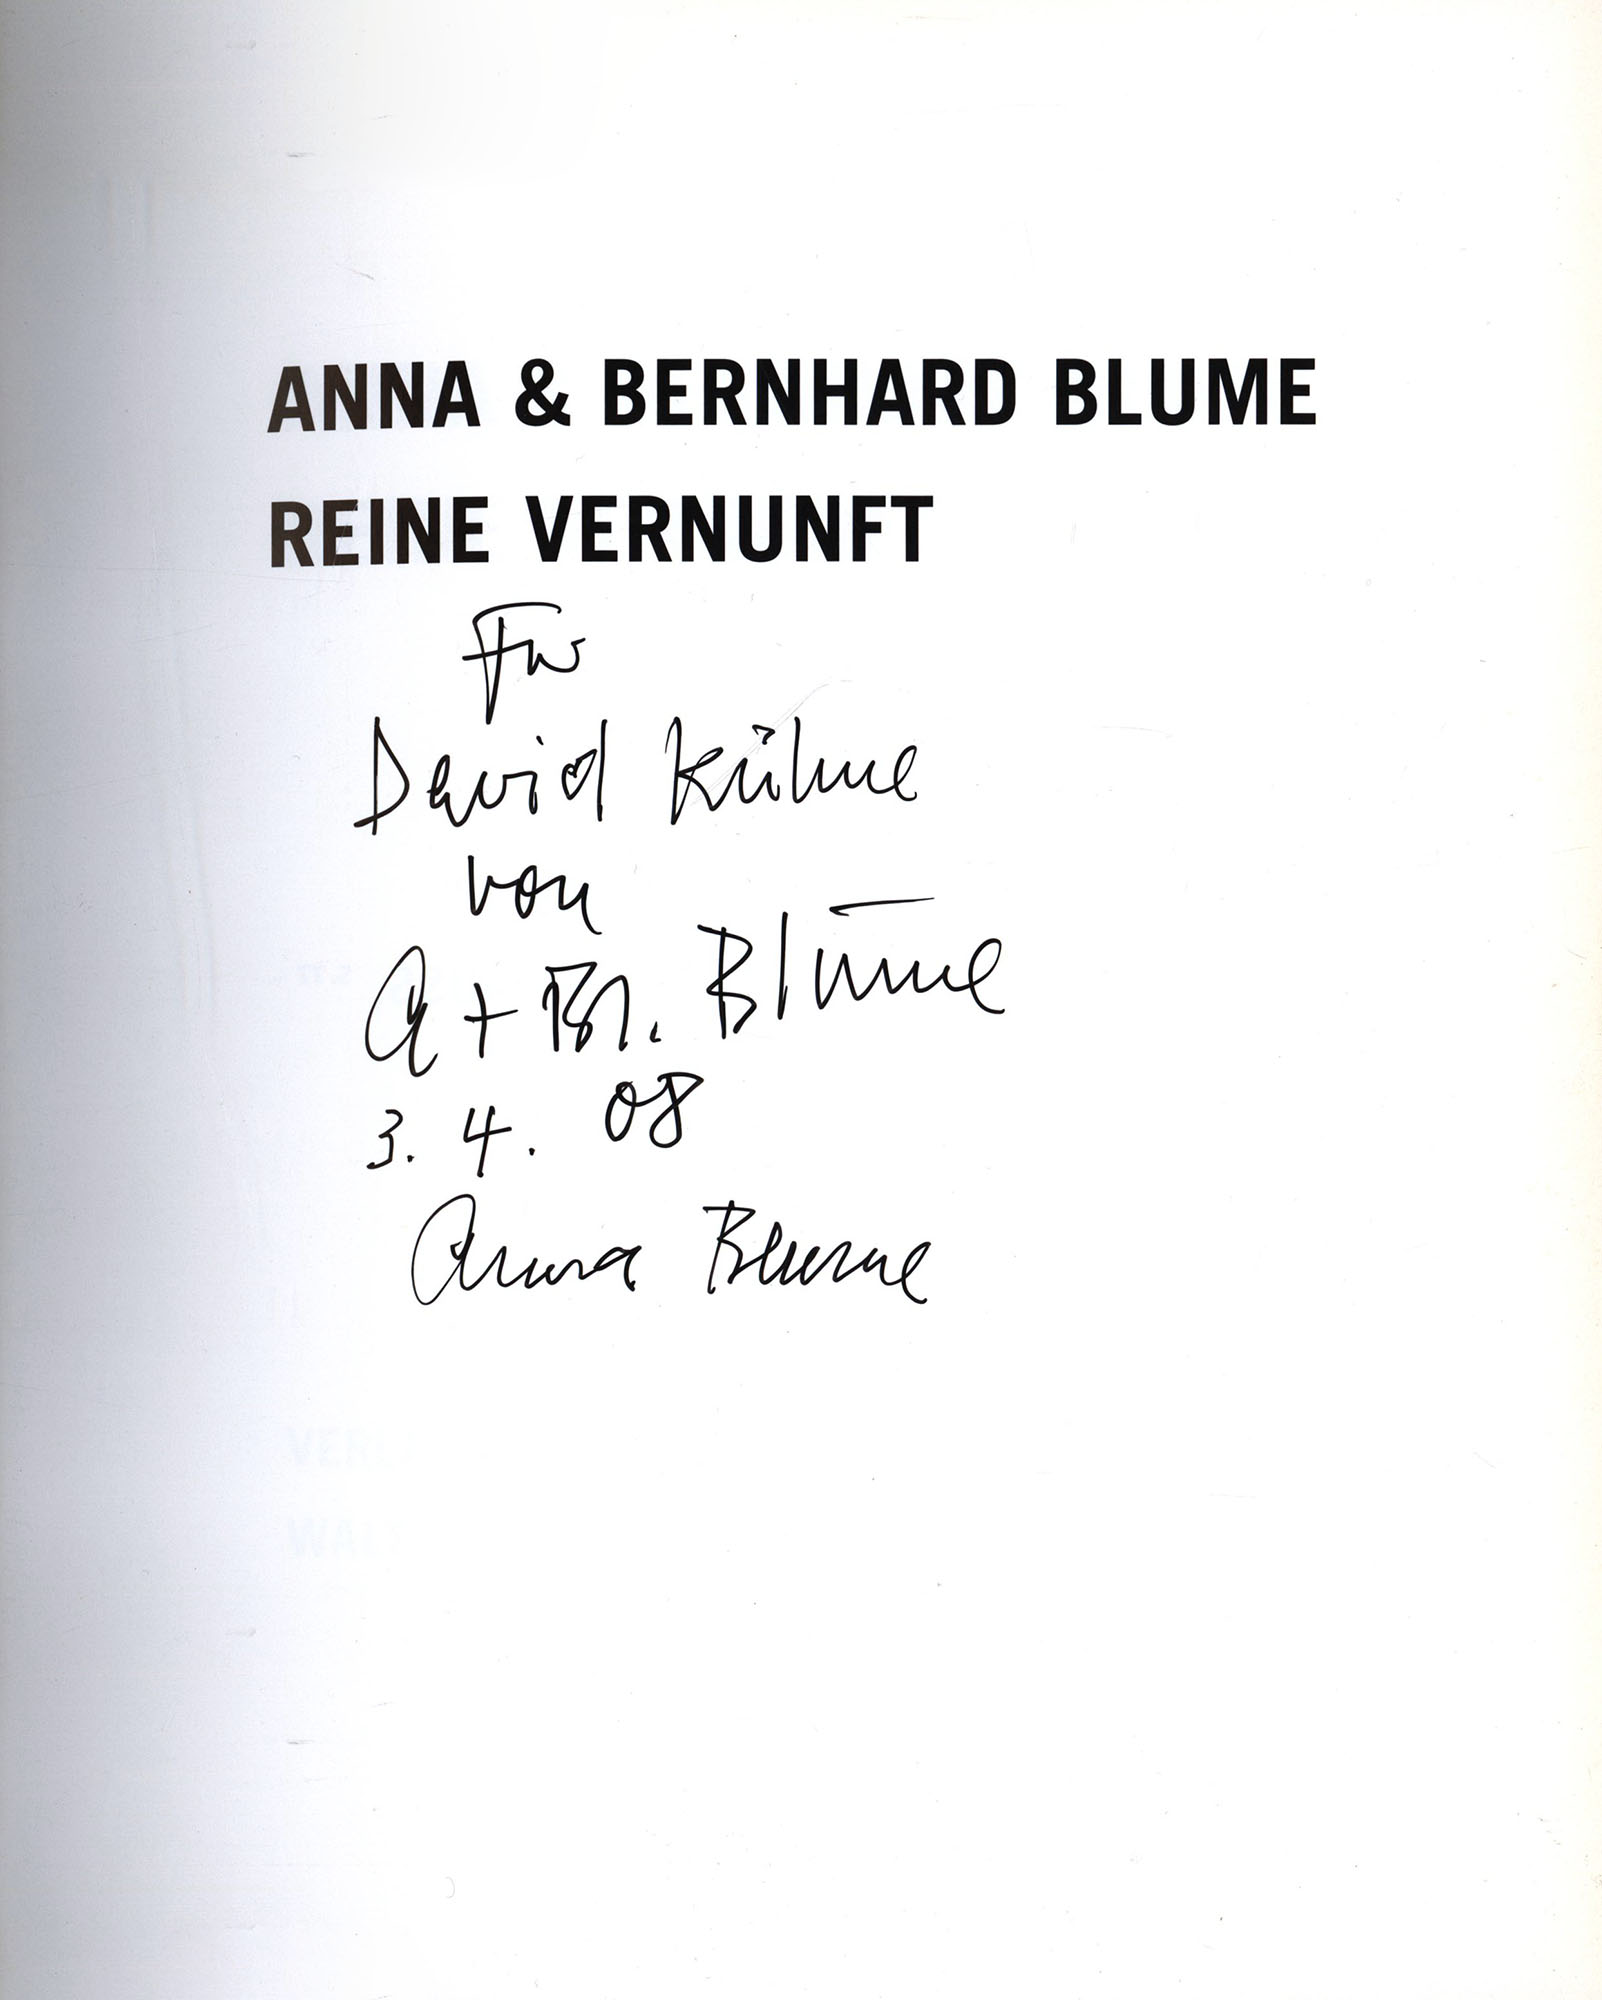 ANNA & BERNHARD BLUME
REINE VERNUNFT
Für
David Kühne
von
A + Bh. Blume
3. 4. 08
Anna Blume